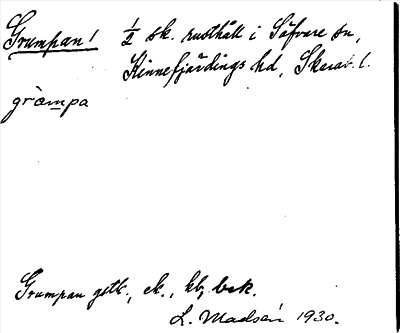 Grumpan! ½ sk. rusthåll i Säfvare sn,
Kinnefjärdings hd, Skarab. l.
grampa
Grumpan gstb., ek., kb, bsk.
L. Madsén 1930.